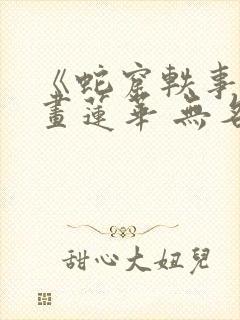 《蛇窟軼事
畫蓮華 無名
甜心大妞兒